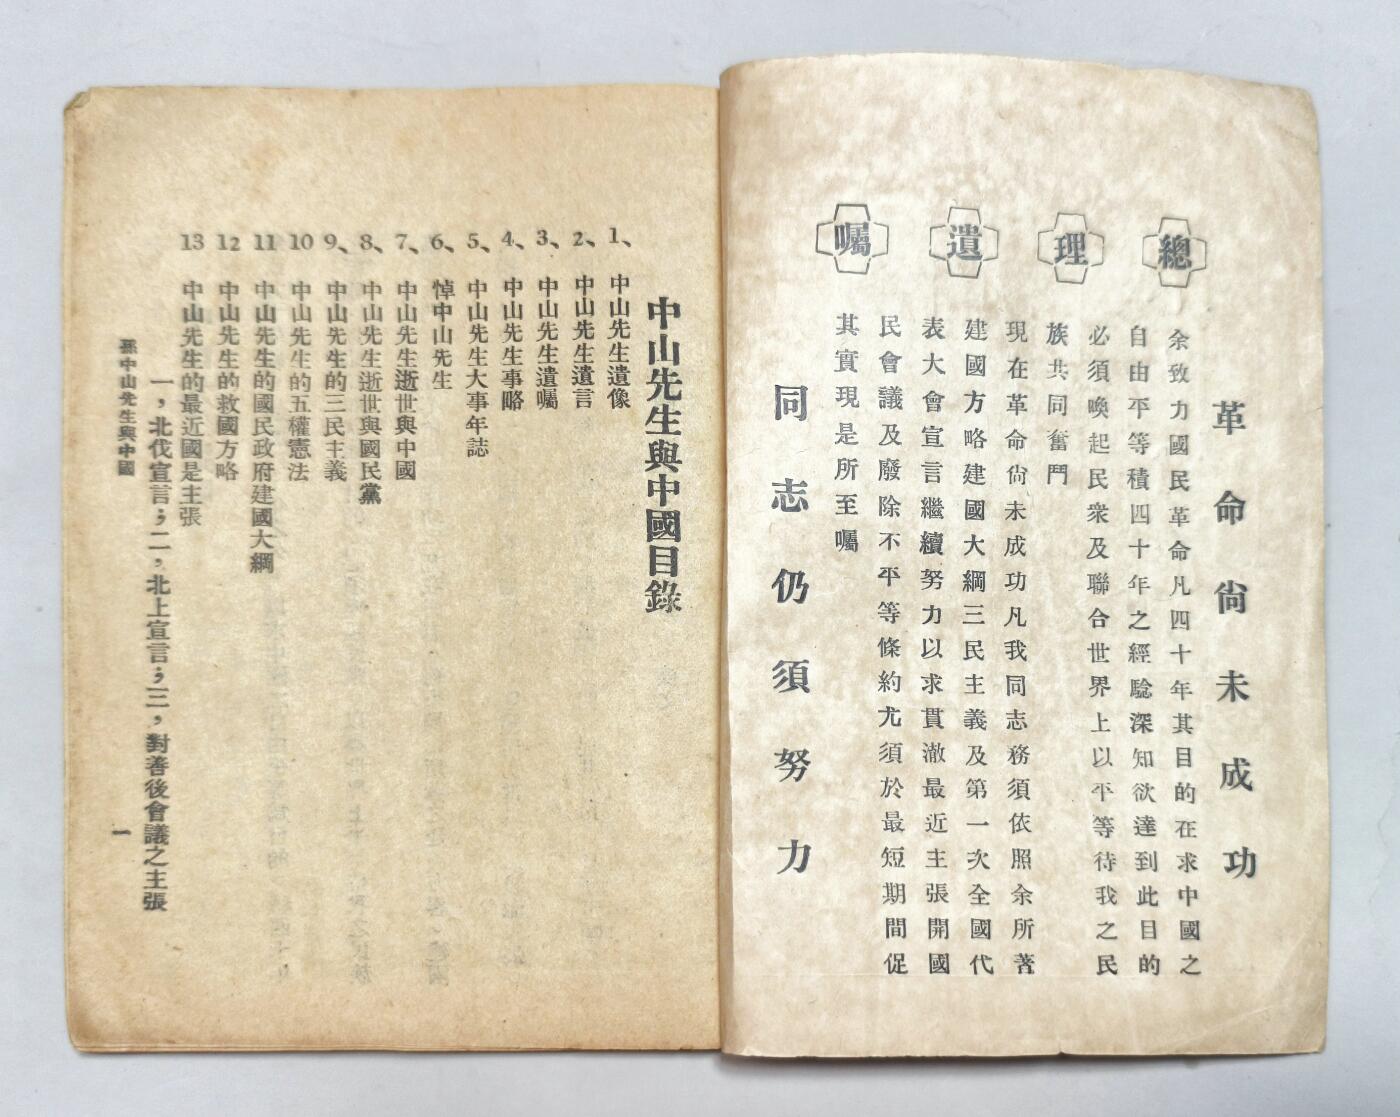 總理遺囑
革命尙未成功
余致力國民革命凡四十年其目的在求中國之
自由平等積四十年之經驗深知欲達到此目的
必須喚起民衆及聯合世界上以平等待我之民
族共同奮鬥
現在革命尙未成功凡我同志務須依照余所著
建國方略建國大綱三民主義及第一次全國代
表大會宣言繼續努力以求貫澈最近主張開國
民會議及廢除不平等條約尤須於最短期間促
其實現是所至囑
同志仍須努力
中山先生與中國目錄
1、中山先生遺像
2、中山先生遺言
3、中山先生遺囑
4、中山先生事略
5、中山先生大事年誌
6、悼中山先生
7、中山先生逝世與中國
8、中山先生逝世與國民黨
9、中山先生的三民主義
10 中山先生的五權憲法
11 中山先生的國民政府建國大綱
12 中山先生的救國方略
13 中山先生的最近國是主張
一，北伐宣言；二，北上宣言；三，對善後會議之主張
孫中山先生與中國
一